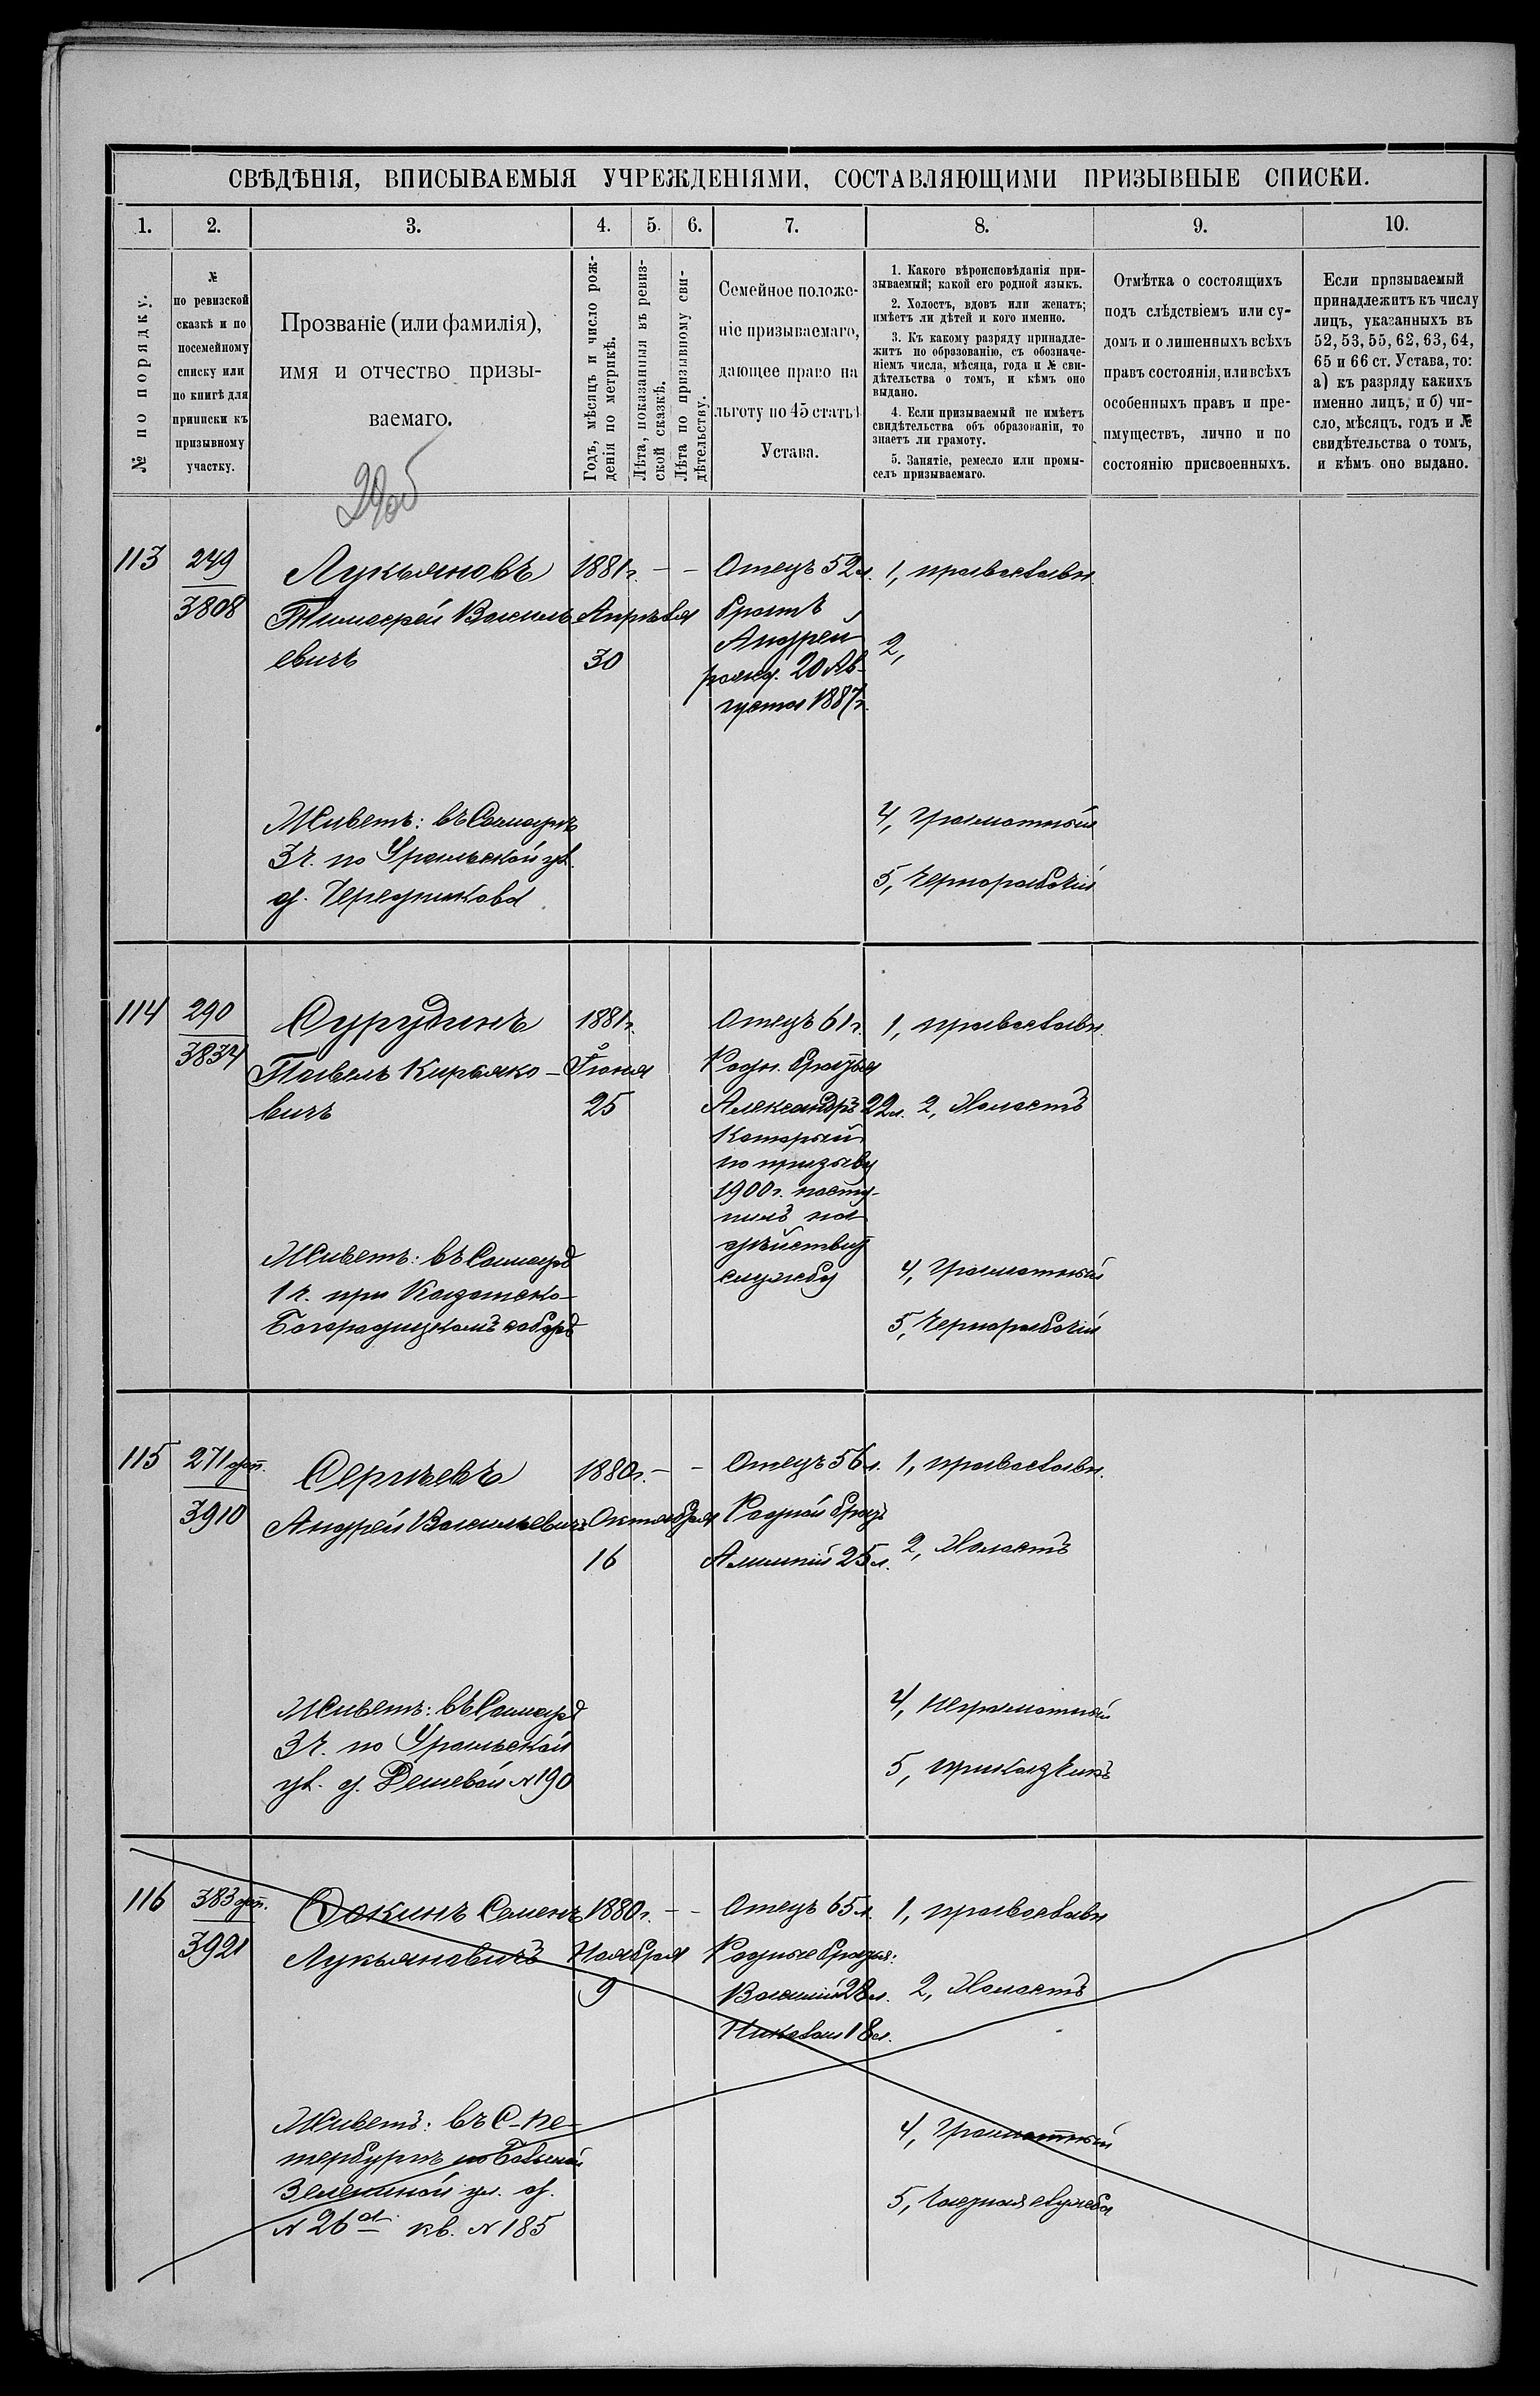 СВѢДѢНІЯ, ВПИСЫВАЕМЫЯ УЧРЕЖДЕНІЯМИ, СОСТАВЛЯЮЩИМИ ПРИЗЫВНЫЕ СПИСКИ.
1. 2. 3. 4. 5. 6. 7. 8. 9. 10.
№ по порядку.
№
по ревизской
сказкѣ и по
посемейному
списку или
по книгѣ для
приписки къ
призывному
участку.
Прозваніе (или фамилія),
имя и отчество призы-
ваемаго.
Годъ, мѣсяцъ и число рож-
денія по метрикѣ.
Лѣта, показанныя въ ревиз-
ской сказкѣ.
Лѣта по призывному сви-
дѣтельству.
Семейное положе-
ніе призываемаго,
дающее право на
льготу по 45 статьѣ
Устава.
1. Какого вѣроисповѣданія при-
зываемый; какой его родной языкъ.
2. Холостъ, вдовъ или женатъ;
имѣетъ ли дѣтей и кого именно.
3. Къ какому разряду принадле-
житъ по образованію, съ обозначе-
ніемъ числа, мѣсяца, года и № сви-
дѣтельства о томъ, и кѣмъ оно
выдано.
4. Если призываемый не имѣетъ
свидѣтельства объ образованіи, то
знаетъ ли грамоту.
5. Занятіе, ремесло или промы-
селъ призываемаго.
Отмѣтка о состоящихъ
подъ слѣдствіемъ или су-
домъ и о лишенныхъ всѣхъ
правъ состоянія, или всѣхъ
особенныхъ правъ и пре-
имуществъ, лично и по
состоянію присвоенныхъ.
Если призываемый
принадлежитъ къ числу
лицъ, указанныхъ въ
52, 53, 55, 62, 63, 64,
65 и 66 ст. Устава, то:
а) къ разряду какихъ
именно лицъ, и б) чи-
сло, мѣсяцъ, годъ и №
свидѣтельства о томъ,
и кѣмъ оно выдано.
113
249
3808
Лукьяновъ
Тимофей Василь
евичъ
Живетъ: въ Самарѣ
3 ч. по Уральской ул.
д. Чередникова
1881 г. - -
Апрѣля
30
Отецъ 52 л.
братъ
Андрей
рожд. 20 Ав-
густа 1887 г.
1, православн.
2,
4, Грамотный
5, Чернорабочій
114
290
3834
Сурудинъ
Павелъ Кирьяко-
вичъ
Живетъ: въ Самарѣ
1 ч. при Казанско-
Богородицкомъ соборѣ
1881 г.
Іюня
25
Отецъ 61 г.
Родн. братья
Александръ 22 л.
который
по призыву
1900 г. посту-
пилъ на
дѣйствит
службу
1, православн.
2, Холостъ
4, Грамотный
5, Чернорабочій
115
271 доп.
3910
Сергѣевъ
Андрей Васильевичъ
Живетъ: въ Самарѣ
3 ч. по Уральской
ул. д. Дешевой № 190
1880 г. - -
Октября
16
Отецъ 56 л.
Родной братъ
25 л.
1, православн.
2, Холостъ
4, Неграмотный
5, приказчикъ
116
383 доп.
3921
Семенъ
Лукьяновичъ
Живетъ: въ С-Пе-
тербургѣ по Большой
Зелениной ул. д.
№ 26 кв. № 185
1880 г. - -
Ноября
9
Отецъ 65 л.
Родные братья:
Василій 28 л.
Николай 18 л.
1, православн
2, Холостъ
4, Грамотный
5, Частная служба